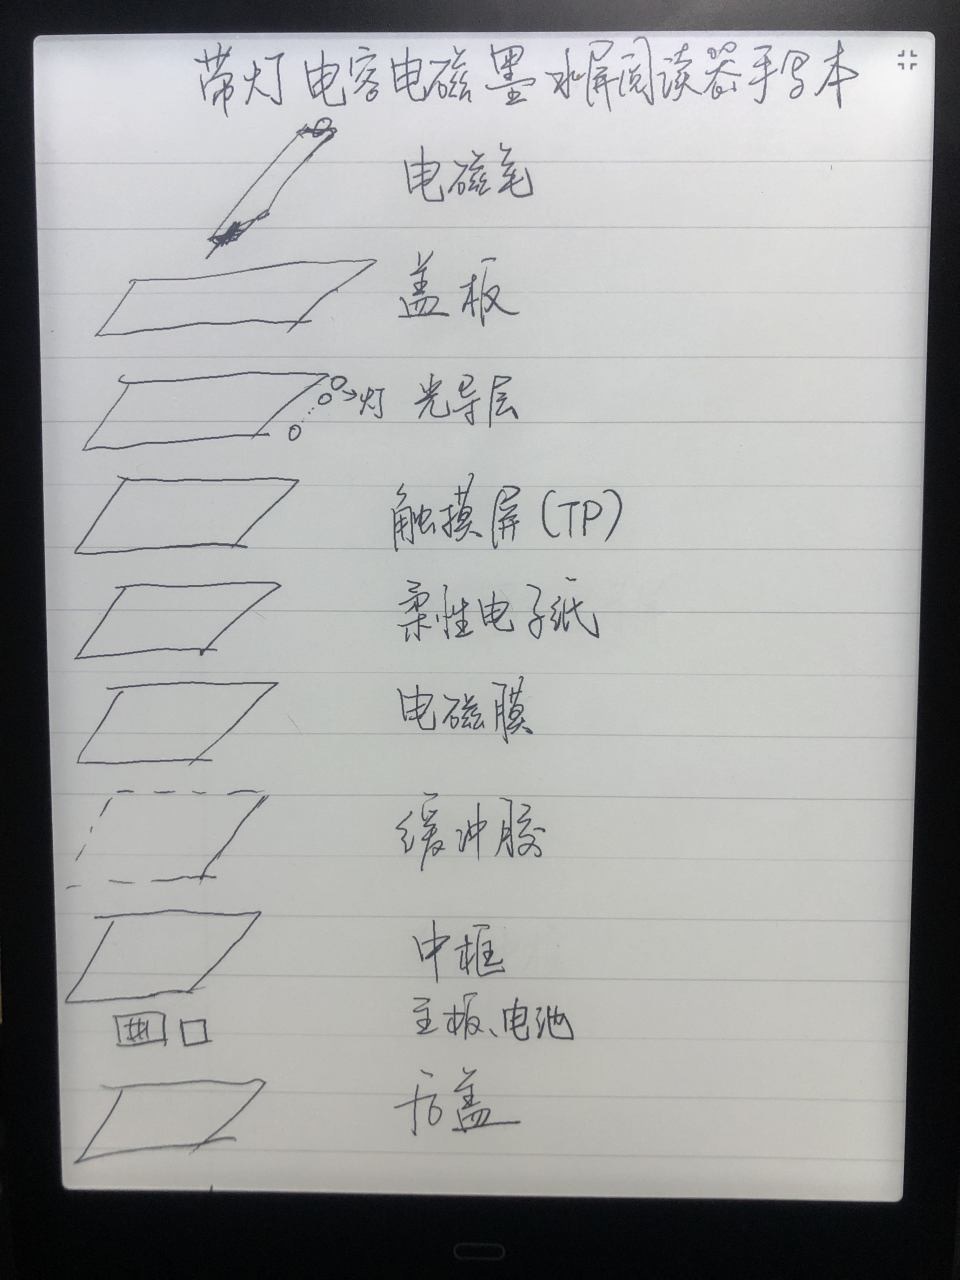 带灯电容电磁墨水屏阅读器手写本
电磁笔
盖板
灯 光导层
触摸屏(TP)
柔性电子纸
电磁膜
缓冲胶
中框
主板、电池
后盖